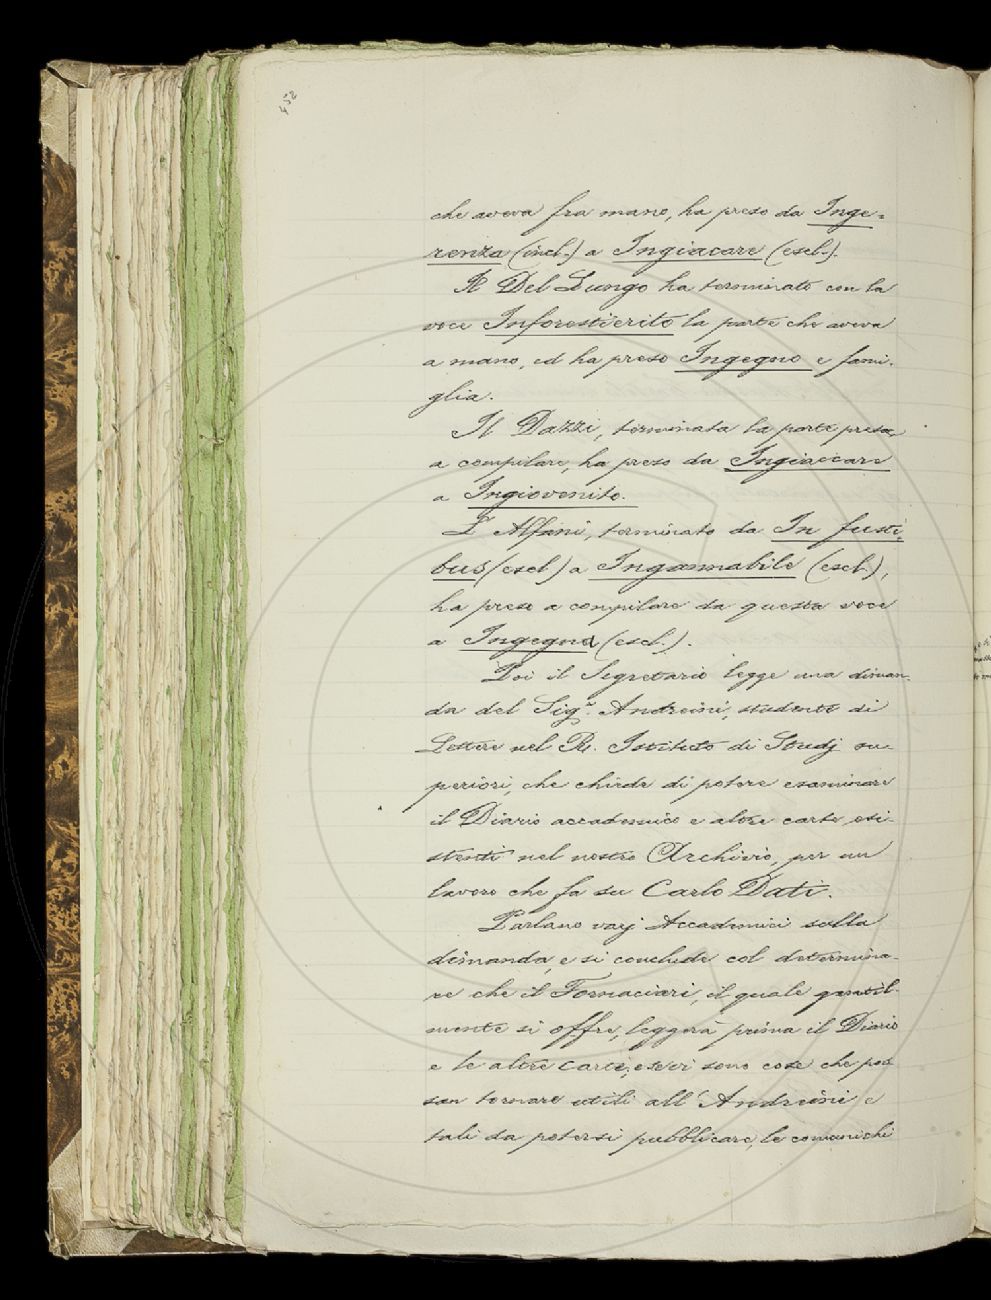 che aveva fra mano, ha preso da Inge=
renza (incl.) a Ingiacare (escl.).
Il Del Lungo ha terminato con la
voce Inforestierito la parte che aveva
a mano, ed ha preso Ingegno e fami-
glia.
Il Dazzi, terminata la parte presa
a compilare, ha preso da Ingiaccare
a Ingiovenito.
L'Alfani, terminato da In fusti-
bus (escl.) a Ingannabile (escl.),
ha preso a compilare da questa voce
a Ingegno (escl.).
Poi il Segretario legge una diman-
da del Sigr. Andreini, studente di
Lettere nel R. Istituto di Studj su-
periori, che chiede di potere esaminare
il Diario accademico e altre carte, esi-
stenti nel nostro Archivio, per un
lavoro che fa su Carlo Dati.
Parlano varj Accademici sulla
dimanda, e si conclude col determina-
re che il Fornaciari, il quale gentil-
mente si offre, leggerà prima il Diario
e le altre carte, e se vi sono cose che pos-
san tornare utili all'Andreini e
tali da potersi pubblicare, le comunichi